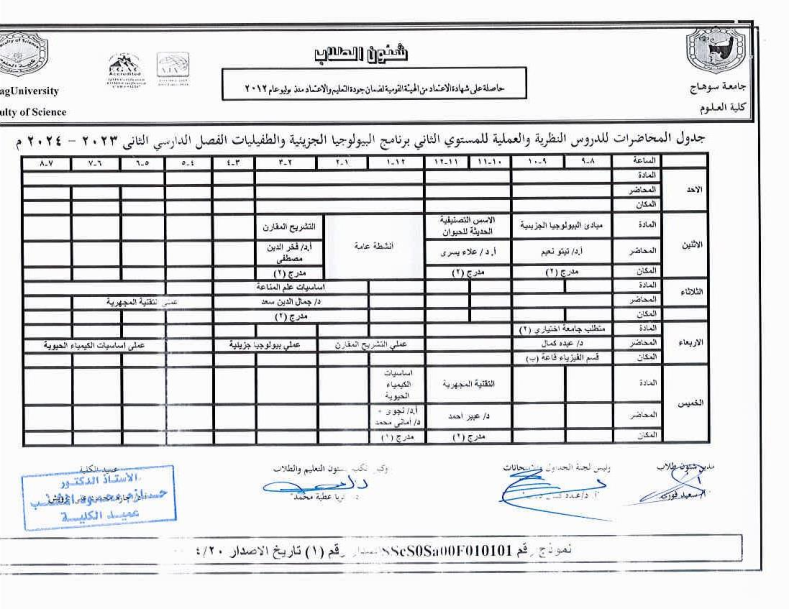 شئون الطلاب
حاصلة على شهادة الاعتماد من الهيئة القومية لضمان جودة التعليم والاعتماد منذ يوليو عام ٢٠١٢
جامعة سوهاج
كلية العلوم
agUniversity
ulty of Science
جدول المحاضرات للدروس النظرية والعملية للمستوي الثاني برنامج البيولوجيا الجزيئية والطفيليات الفصل الدارسي الثانى ٢٠٢٣ – ٢٠٢٤ م
الساعة ٨-٩ ٩-١٠ ١٠-١١ ١١-١٢ ١٢-١ ١-٢ ٢-٣ ٣-٤ ٤-٥ ٥-٦ ٦-٧ ٧-٨
الاحد
المادة
المحاضر
المكان
الاثنين
المادة مبادئ البيولوجيا الجزيئية الاسس التصنيفية الحديثة للحيوان أنشطة عامة التشريح المقارن
المحاضر أ.د/ نيتو نعيم أ.د/ علاء يسرى أ.د/ فخر الدين مصطفى
المكان مدرج (٢) مدرج (٢) مدرج (٢)
الثلاثاء
المادة اساسيات علم المناعة
المحاضر د/ جمال الدين سعد عملى التقنية المجهرية
المكان مدرج (٢)
الاربعاء
المادة متطلب جامعة اختياري (٢)
المحاضر د/ عبده كمال عملي التشريح المقارن عملي بيولوجيا جزيئية عملى اساسيات الكيمياء الحيوية
المكان قسم الفيزياء قاعة (ب)
الخميس
المادة التقنية المجهرية اساسيات الكيمياء الحيوية
المحاضر د/ عبير احمد أ.د/ نجوى + د/ أمانى محمد
المكان مدرج (٢) مدرج (١)
مدير شئون طلاب
رئيس لجنة الجدول
شئون التعليم والطلاب
عميد الكلية
عطية محمد
الأستاذ الدكتور
عميد الكلية
نموذج رقم SScS0Sa00F010101 رقم (١) تاريخ الاصدار ٤/٢٠